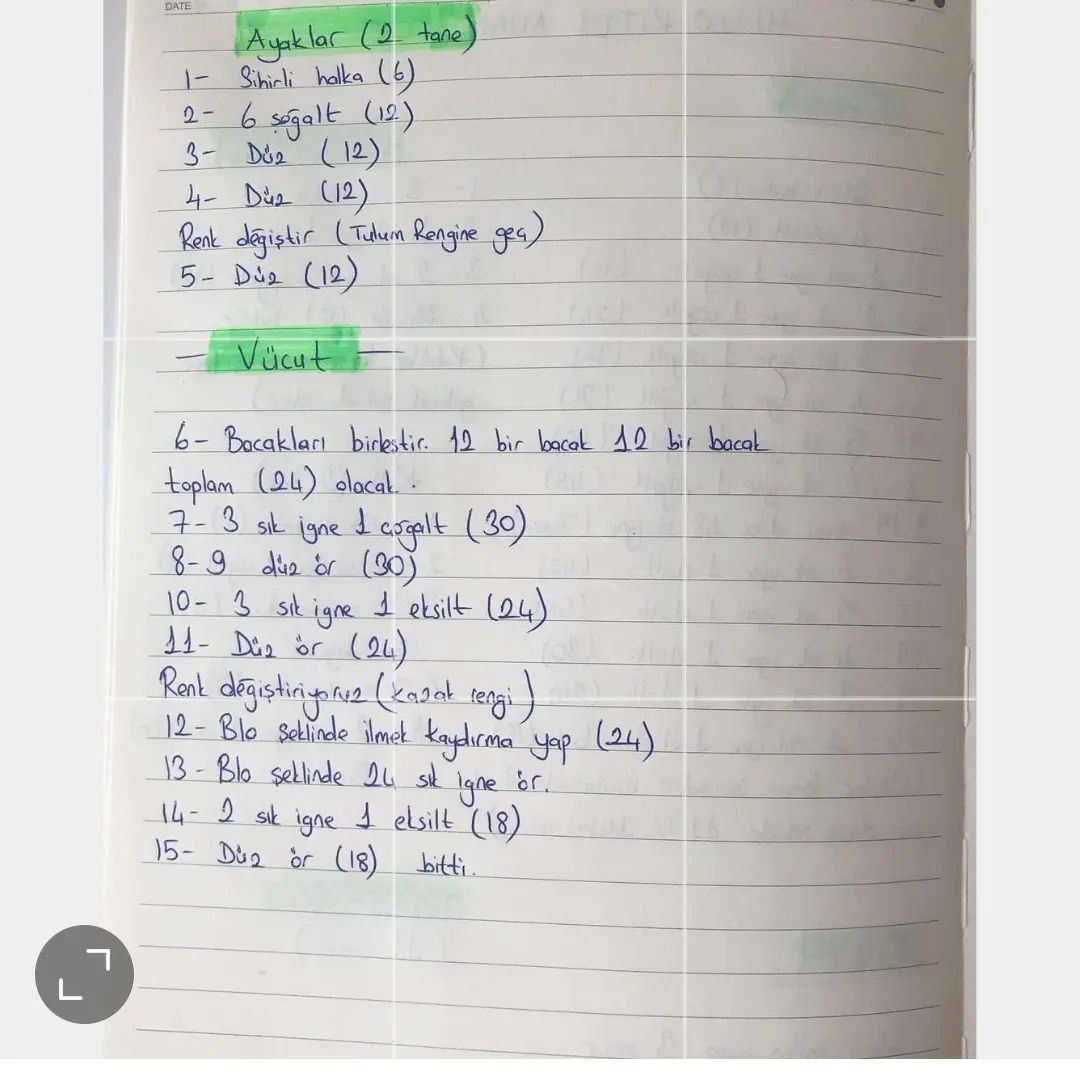 DATE
Ayaklar (2 tane)
1- Sihirli halka (6)
2- 6 çoğalt (12)
3- Düz (12)
4- Düz (12)
Renk değiştir (Tulum Rengine geç)
5- Düz (12)
- Vücut -
6- Bacakları birleştir. 12 bir bacak 12 bir bacak
toplam (24) olacak.
7- 3 sık iğne 1 çoğalt (30)
8-9 düz ör (30)
10- 3 sık igne 1 eksilt (24)
11- Düz ör (24)
Renk değiştiriyoruz (kazak rengi)
12- Blo şeklinde ilmek kaydırma yap (24)
13- Blo şeklinde 24 sık igne ör.
14- 2 sık igne 1 eksilt (18)
15- Düz ör (18) bitti.